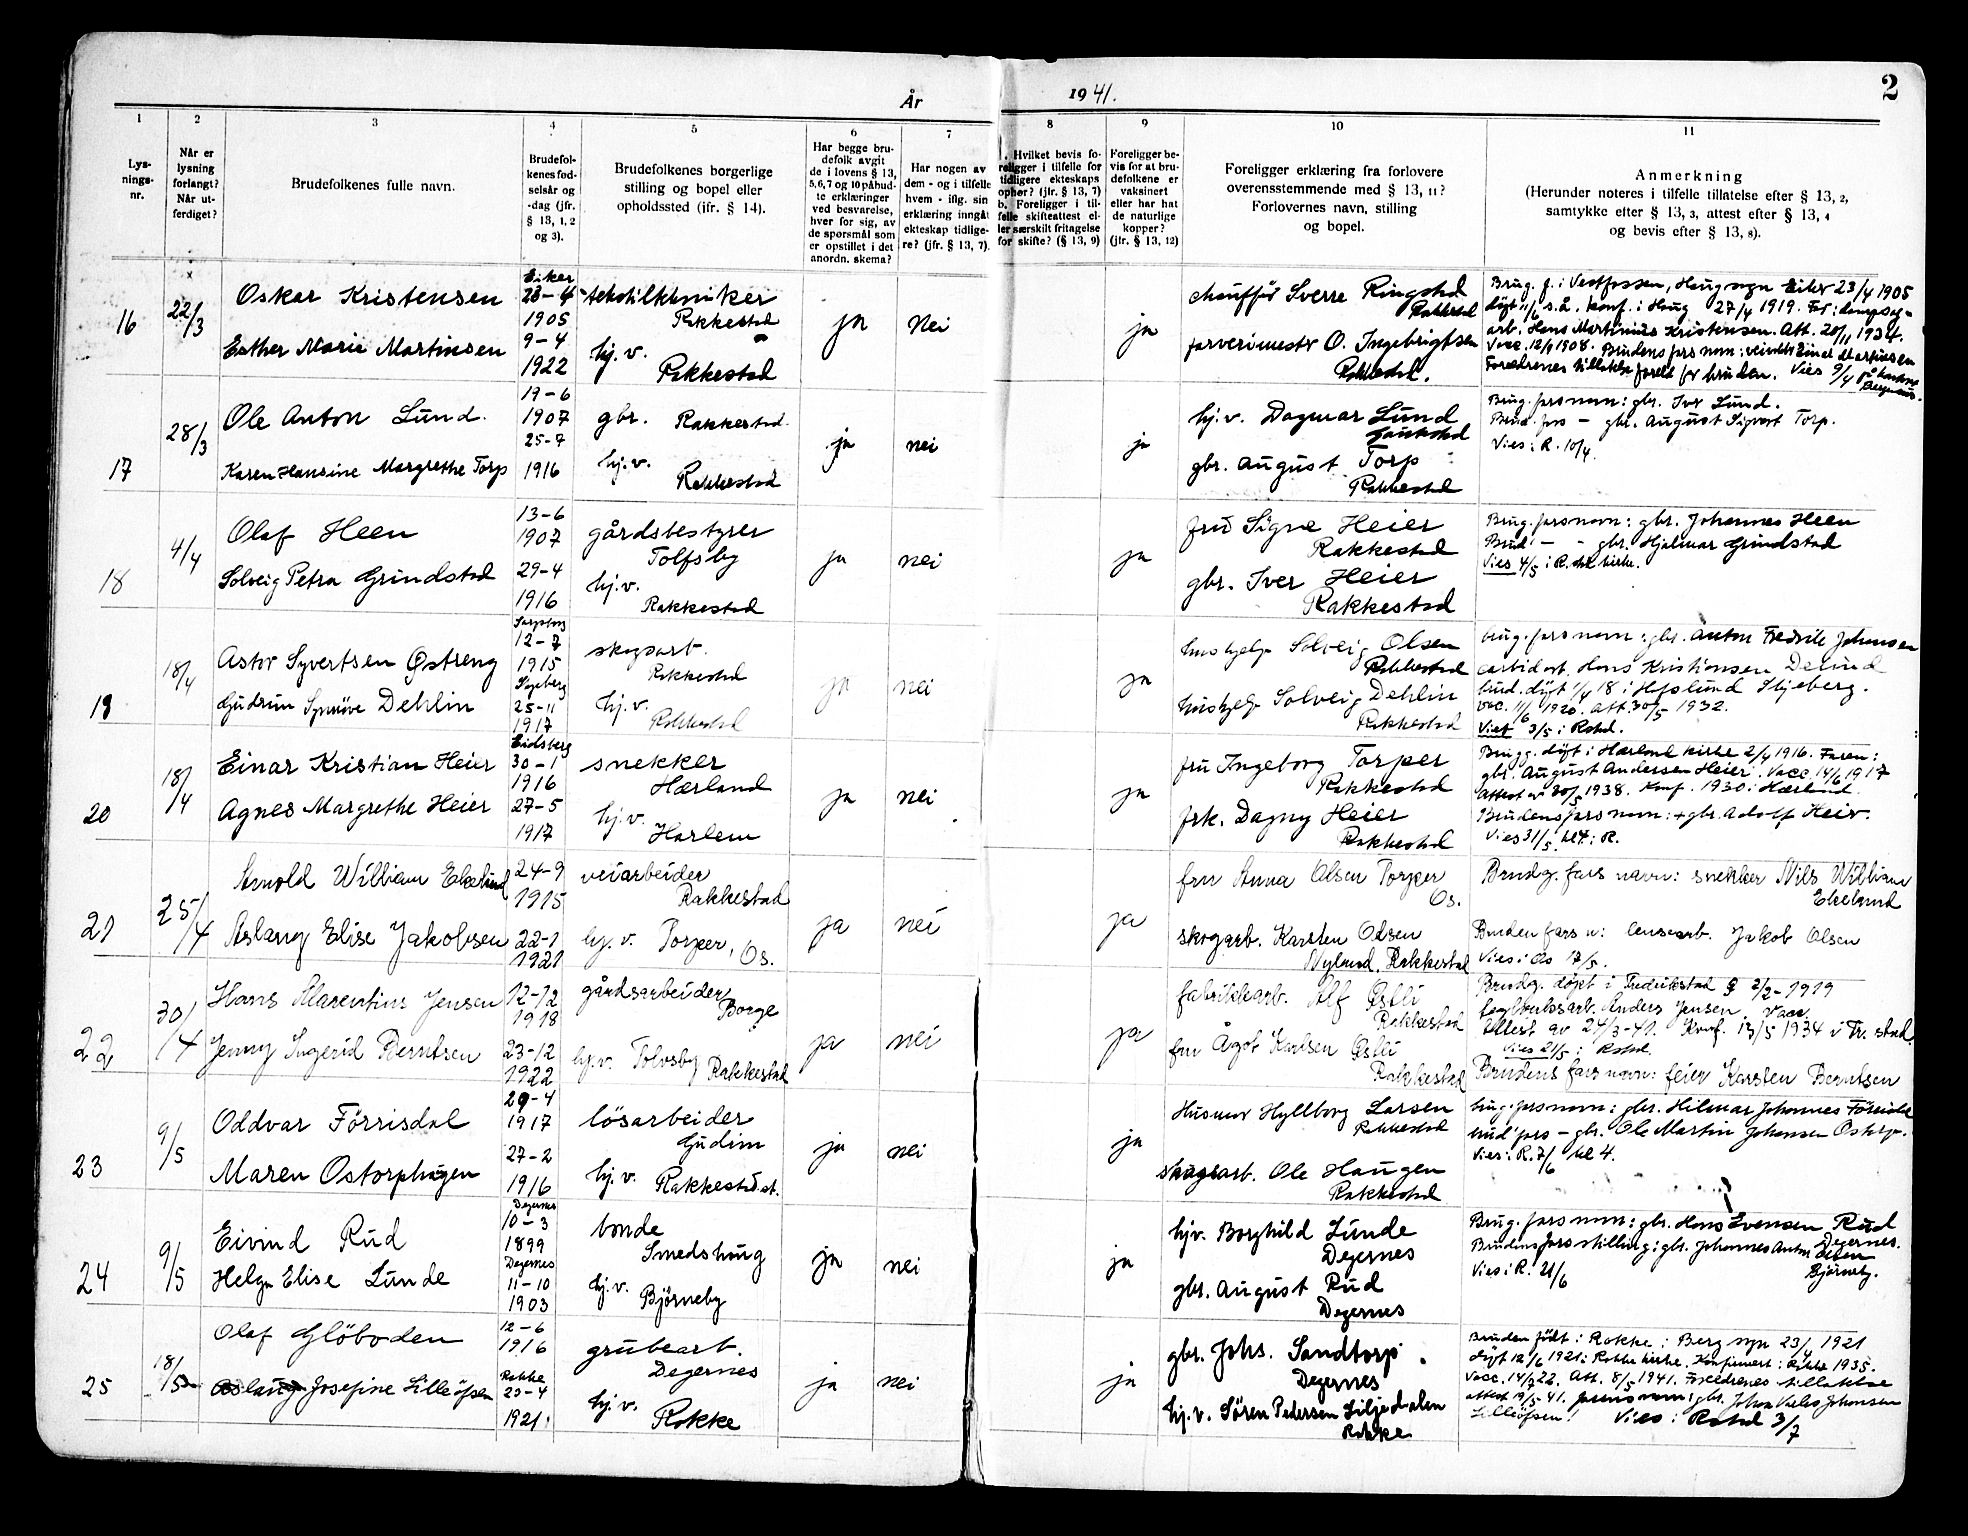 År 1941.
2
1
2
3
4
5
6
7
8
9
10
11
Lys-
nings-
nr.
Når er
lysning
forlangt?
Når ut-
ferdiget?
Brudefolkenes fulle navn.
Brudefol-
kenes fød-
selsår og
-dag (jfr.
§ 13, 1, 2
og 3).
Brudefolkenes borgerlige
stilling og bopel eller
opholdssted (ifr. § 14).
Har begge bru-
defolk avgit
de i lovens § 13,
5,6,7 og 10 påbud-
te erklæringer
ved besvarelse,
hver for sig, av
de spørsmål som
er opstillet i det
anordn. skema?
Har nogen av
dem - og i tilfelle
hvem - iflg. sin
erklæring inngått
ekteskap tidlige-
re? (jfr. § 13, 7).
Hvilket bevis fo-
religger i tilfelle for
tidligere ekteskaps
ophør? (jfr. § 13, 7)
b. Foreligger i til-
felle skifteattest el-
ler særskilt fritagelse
for skifte? (§ 13, 9)
Foreligger be-
vis for at bru-
defolkene er
vaksinert
eller har hat
de naturlige
kopper?
(jfr. § 13, 12)
Foreligger erklæring fra forlovere
overensstemmende med § 13, 11?
Forlovernes navn, stilling
og bopel.
Anmerkning
(Herunder noteres i tilfelle tillatelse efter § 13, 2,
samtykke efter § 13, 3, attest efter § 13, 4
og bevis efter § 13, 8).
16
22/3
Oskar Kristensen
Esther Marie Martinsen
Eiker
23-4
1905
9-4
1922
tekstiltekniker
Rakkestad
hj.v.
Rakkestad
ja
nei
ja
chauffør Sverre Ringstad
Rakkestad
farverimestr O. Ingebrigtsen
Rakkestad.
Brug. f. i Vestfossen, Haug sogn Eiker 23/4 1905
døpt 11/6 s.å. konf. i Haug 27/4 1919. Far: dampsag-
arb. Hans Martinius Kristensen. Att. 20/11 1934.
Vacc. 12/9 1908. Brudens fars navn: Einar Martinsen
Foreldrenes tillatelse forelå for bruden. Vies 9/4
17
28/3
Ole Anton Lund.
Karen Hansine Margrethe Torp
19-6
1907
25-7
1916
gbr. Rakkestad.
hj.v.
Rakkestad
ja
nei
ja
hj.v. Dagmar Lund
gbr. August Torp
Rakkestad
Brug. fars navn: gbr. Iver Lund.
Brud. fars - gbr. August Sigvart Torp.
Vies i R. 10/4.
18
4/4
Olaf Heen
Solveig Petra Grindstad
13-6
1907
29-4
1916
gårdsbestyrer
Tolfsby
hj.v.
Rakkestad
ja
nei
ja
fru Signe Heier
Rakkestad
gbr. Iver Heier
Rakkestad
Brug. fars navn: gbr. Johannes Heen
Brud - - gbr. Hjalmar Grindstad
Vies 4/5 i R.stad kirke.
19
18/4
Astor Syvertsen Østreng
Gudrun Synnøve Dehlin
Sarpsborg
12-7
1915
Skjeberg
25-11
1917
skogsarb.
Rakkestad
hj.v.
Rakkestad
ja
nei
ja
hushjelp Solveig Olsen
Rakkestad
hushjelp Solveig Dehlin
Rakkestad
brug. fars navn: gbr. Anton Fredrik Johansen
Hans Kristiansen
brud. døpt 1/4 18 i Hafslund Skjeberg.
vac. 11/6 1920. att. 30/5 1932.
Viet 3/5 i Rstd.
20
18/4
Einar Kristian Heier
Agnes Margrethe Heier
Eidsberg
30-1
1916
27-5
1917
snekker
Hærland
hj.v.
Harlem
ja
nei
ja
fru Ingeborg Torper
Rakkestad
frk. Dagny Heier
Rakkestad
Brugg. døpt i Hærland kirke 2/4 1916. Faren:
gbr. August Andersen Heier. Vacc. 14/6 1917
Attest av 30/5 1938. Konf. 1930 i Hærland.
Brudens fars navn: + gbr. Adolf Heier.
Vies 31/5 kl 4 i R.
21
25/4
Arnold William Ekelund
Aslaug Elise Jakobsen
24-9
1915
22-1
1921
veiarbeider
Rakkestad
hj.v. Torper, Os.
ja
nei
ja
fru Anna Olsen Torper
Os.
skogarb. Karsten Olsen
Nylund, Rakkestad
Brudg. fars navn: snekker Nils William
Ekelund
Bruden fars n: Jakob Olsen
Vies i Os 17/5.
22
30/4
Hans Marentius Jensen
Jenny Ingerid Berntsen
12-12
1918
23-12
1922
gårdsarbeider
Borge
hj.v. Tolvsby Rakkestad
ja
nei
ja
fabrikkarb. Alf Østli
Rakkestad
fru Ågot Karlsen Østli
Rakkestad
Brudg. døpt i Fredrikstad 2/2-1919
teglverksarb. Anders Jensen. Vacc.
Attest av 24/3-41. Konf. 13/5 1934 i Fr.stad.
Vies 21/5 i Rstad.
Brudens fars navn: feier Karsten Berntsen
23
9/5
Oddvar Førrisdal
Maren Ostorphaugen
29-4
1917
27-2
1916
løsarbeider
Gudim
hj.v. Rakkestad st.
ja
nei
ja
Husmor Hyllborg Larsen
Rakkestad
skogsarb. Ole Haugen
Rakkestad
brug. fars navn: gbr. Hilmar Johannes Førrisdal
brud fars - gbr. Ole Martin Johansen
Vies i R. 7/6 kl 4.
24
9/5
Eivind Rud
Helga Elise Lunde
Degernes
10-3
1899
Degernes
11-10
1903
bonde
Smedshaug
hj.v. Bjørneby
ja
nei
ja
hjv. Borghild Lunde
Degernes
gbr. August Rud
Degernes
Brug. fars navn: gbr. Hans Evensen Rud
Degernes.
Brudens fars stilling: gbr. Johannes Anton Olsen
Vies i R. 21/6
Bjørneby.
25
18/5
Olaf Glöboden
Aslaug Josefine Lilleöfsen
12-6
1916
Rokke
23-4
1921.
grubearb.
Degernes
hj.v.
Rokke
ja
nei
ja
gbr. Johs. Sandtorp
Degernes
hj.v. Søren Pedersen Liljedalen
Rokke
Bruden født i Rokke i Berg sogn 23/4 1921
døpt 12/6 1921 i Rokke kirke. Konfirmert i Rokke 1935.
Vacc. 14/7 22. Att. 8/5 1941. Foreldrenes tillatelse
attest 19/5-41. farens navn: gbr. Johan Johansen
Lilleöfsen! Vies i Rstad 3/7